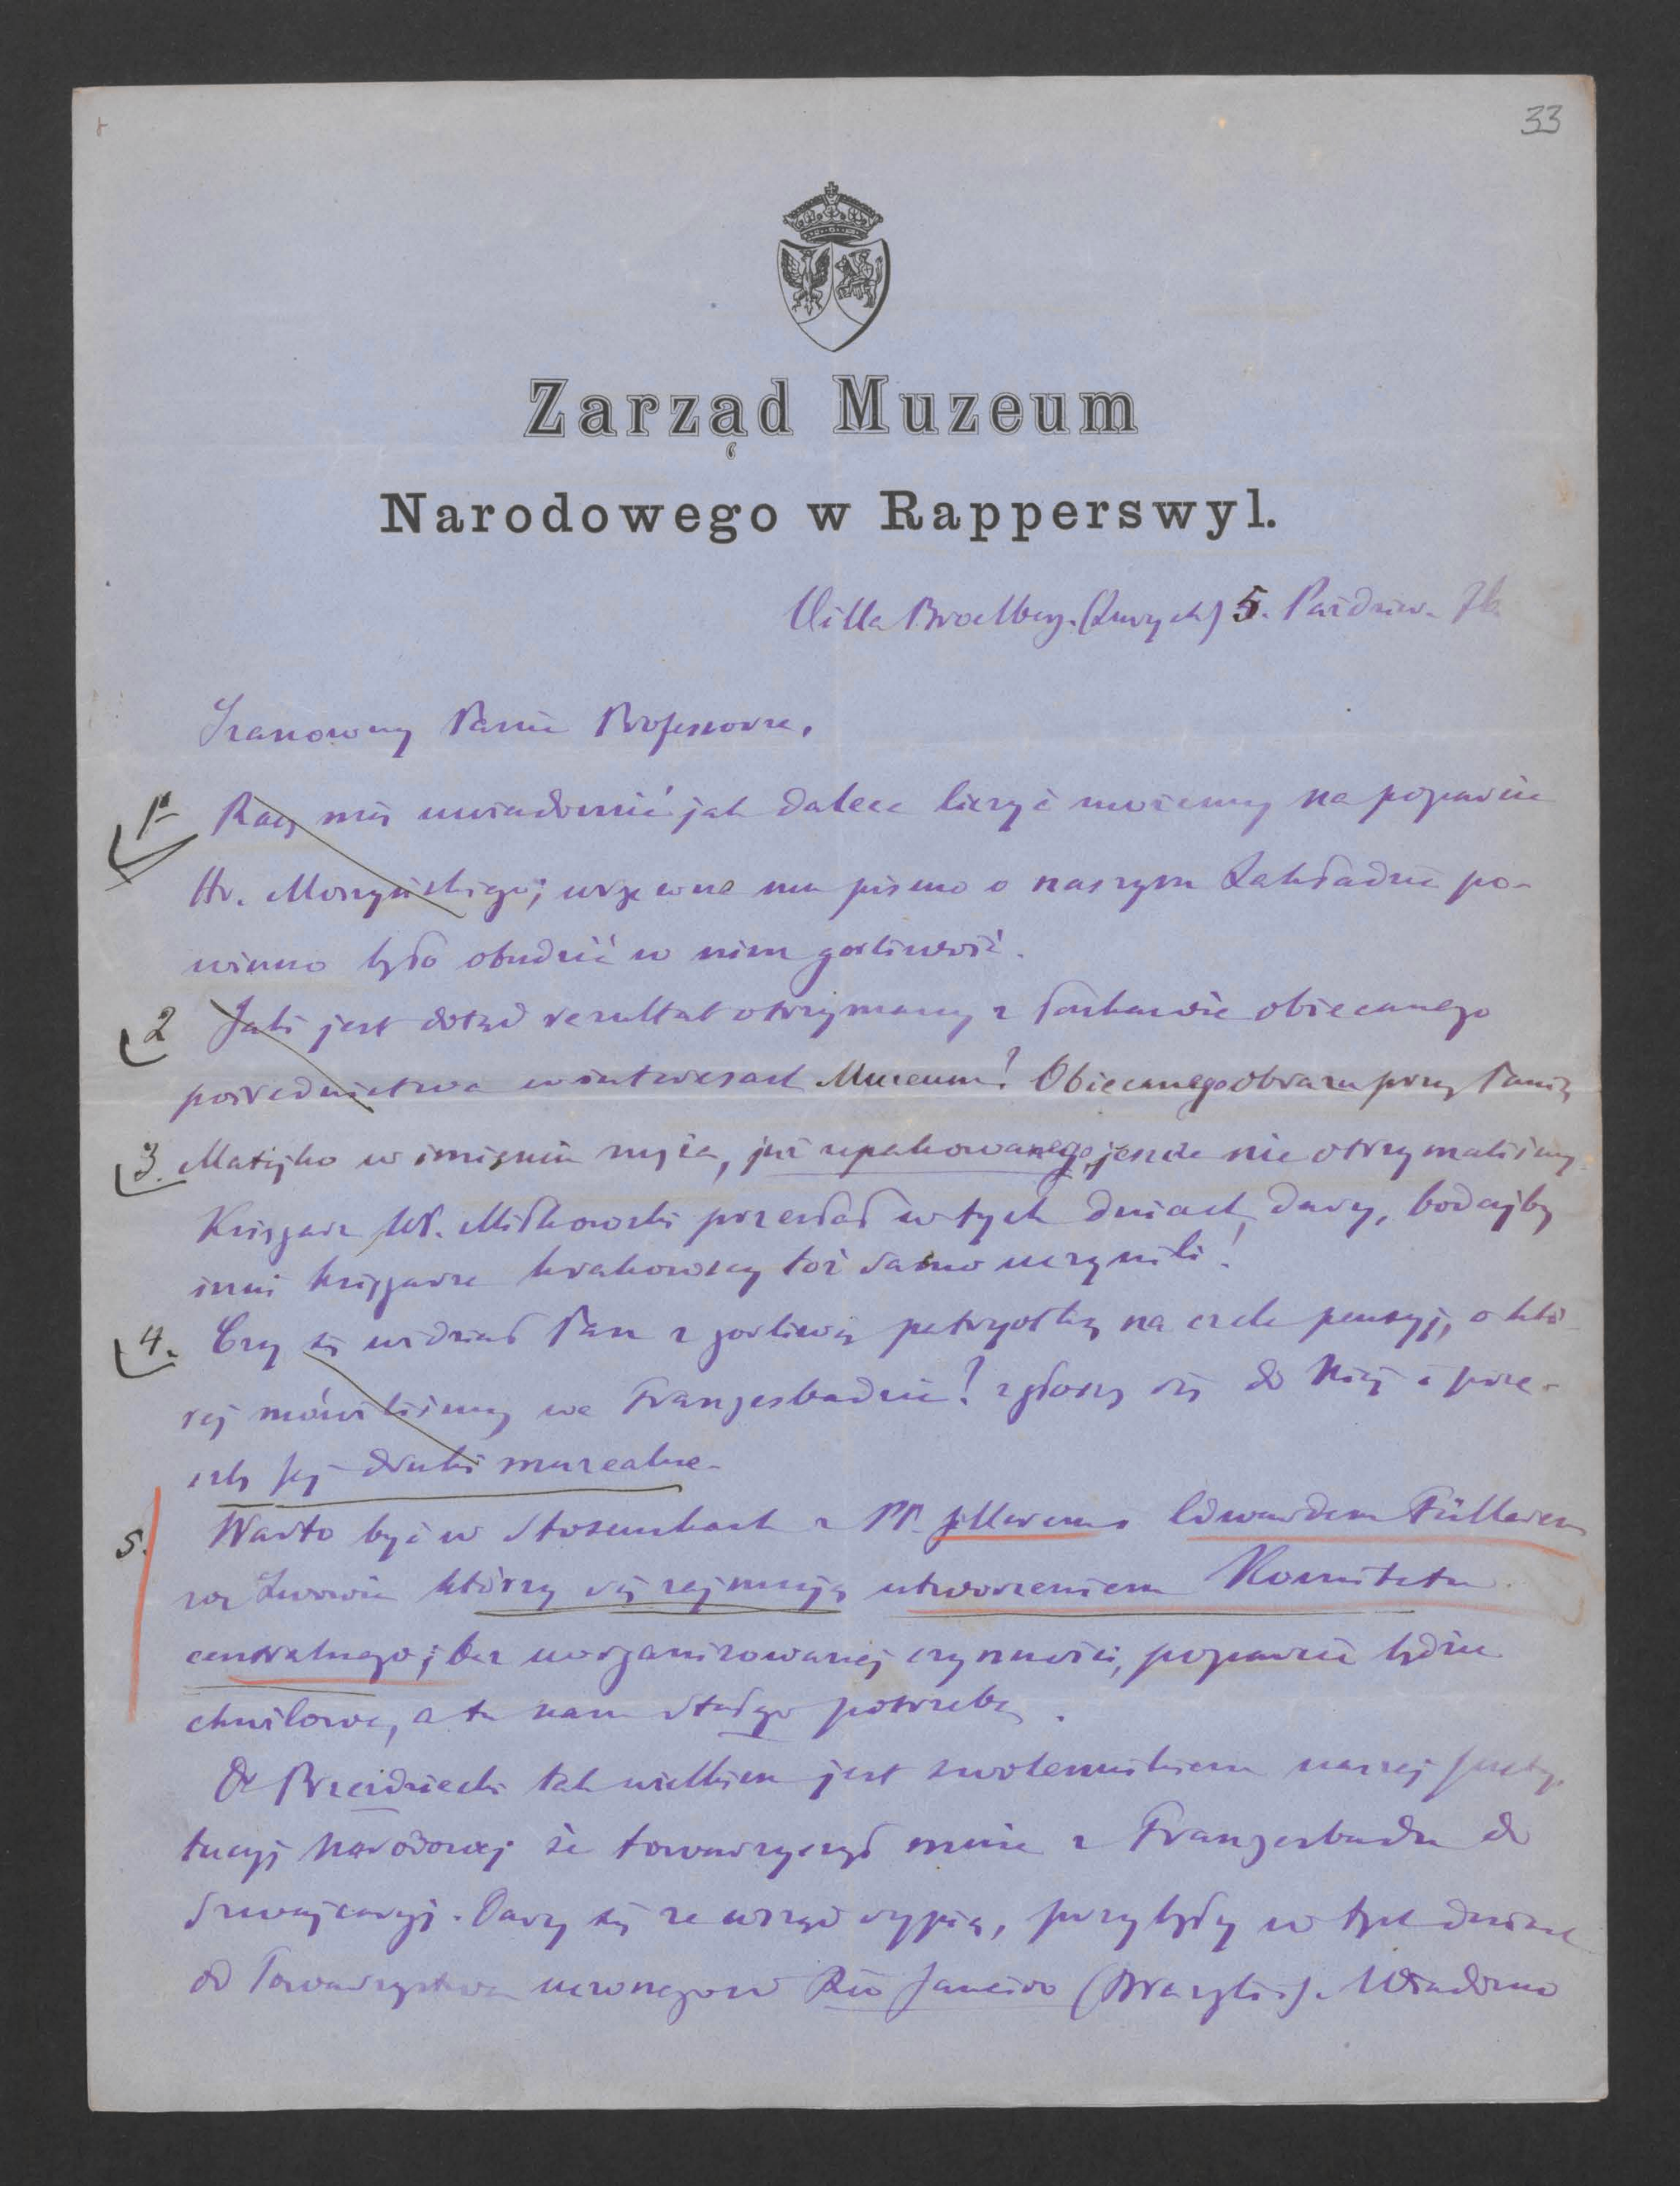 33
Zarząd Muzeum
Narodowego w Rapperswyl.
Villa Broelberg. (Zurych) 5. Paździer. 76.
Szanowny Panie Profesorze,
1º Racz mię uwiadomić jak dalece liczyć możemy na poparcie
Hr. Moszyńskiego; wszewne mu pismo o naszym Zakładzie po-
winno było obudzić w nim gorliwość.
2 Jaki jest dotąd rezultat otrzymany z łaskawie obiecanego
pośrednictwa w interesach Muzeum? Obiecanego obrazu przez Panią
3. Matejko w imieniu męża, już upakowanego, jeszcze nie otrzymaliśmy.
Księgarz Wł. Miłkowski przesłał w tych dniach dary, bodajby
inni księgarze krakowscy toż samo uczynili!
4. Czy się widział Pan z gorliwą patryotką na czele pensyj, o któ-
rej mówiliśmy we Franzesbadzie? zgłoszę się do Niej i prze-
szlę jej druki muzealne.
5. Warto być w stosunkach z PP. Edwardem Füllerem
we Lwowie którzy się zajmują utworzeniem Komitetu
centralnego; bez uorganizowanej czynności, poparcie będzie
chwilowe, a tu nam stałego potrzeba.
Dr Brzeidziecki tak wielkiem jest zwolennikiem naszej Insty-
tucyj Narodowej że towarzyszył mnie z Franzesbadu do
Szwajcaryj. Dary się ze wsząd sypią, przybyły w tych dniach
od Towarzystwa uczonego w Rio Janeiro (Brazylia). Wiadomo